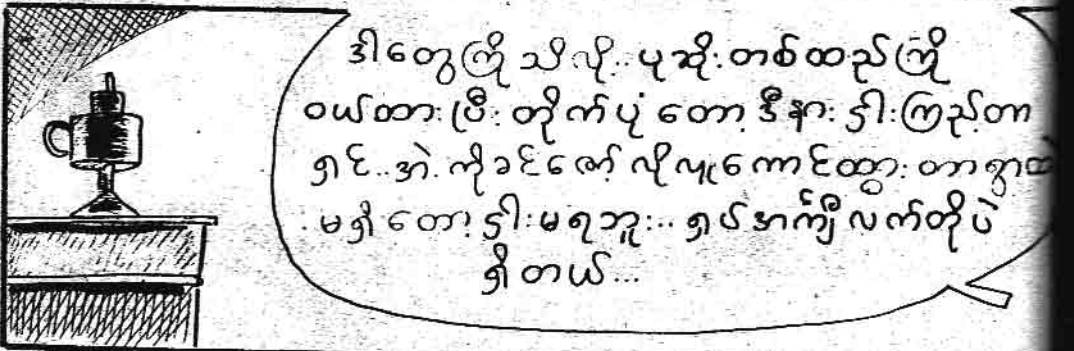 ဒါတွေကြို သိလို့.. ပုဆိုးတစ်ထည်ကြို
ဝယ်ထားပြီး တိုက်ပုံ တော့ ဒီနား ငှါးကြည့်တာ
ရှင်.. အဲ. ကိုခင်ဇော် လိုလူကောင်ထွား တာရွာထဲ
မရှိတော့ ငှါးမရဘူး... ရှပ်အင်္ကျီ လက်တိုပဲ
ရှိတယ်...